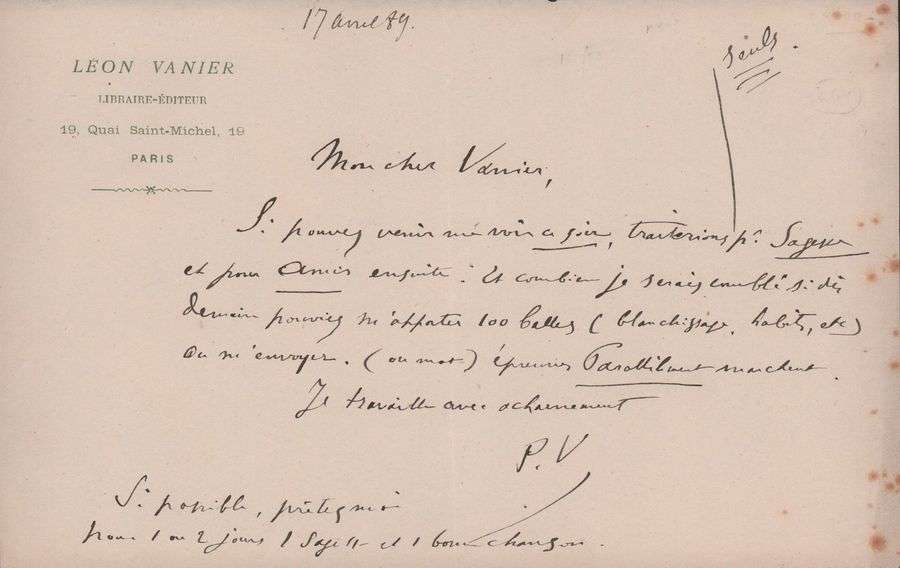 17 avril 89.
seuls.
LÉON VANIER
LIBRAIRE-ÉDITEUR
19, Quai Saint-Michel, 19
PARIS
Mon cher Vanier,
Si pouvez venir me voir ce soir, traiterions pr. Sagesse
et pour Amour ensuite. Et combien je serais comblé si dès
demain pouviez m'apporter 100 balles (blanchissage, habits, etc)
ou m'envoyer. (ou mot) épreuves Parallèlement marchent.
Je travaille avec acharnement
P. V
Si possible, prêtez moi
pour 1 ou 2 jours 1 Sagesse et 1 bonne chanson.